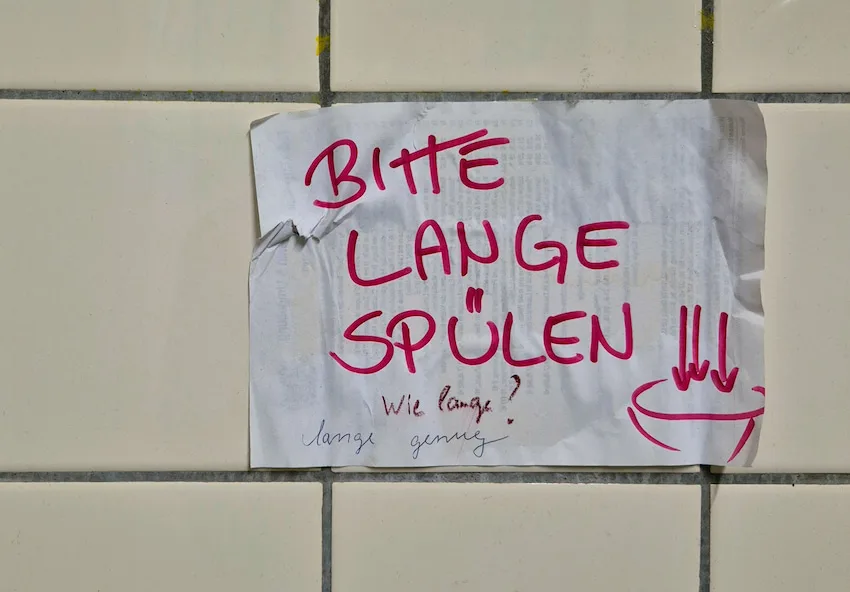 BITTE
LANGE
SPÜLEN
Wie lange?
lange genug